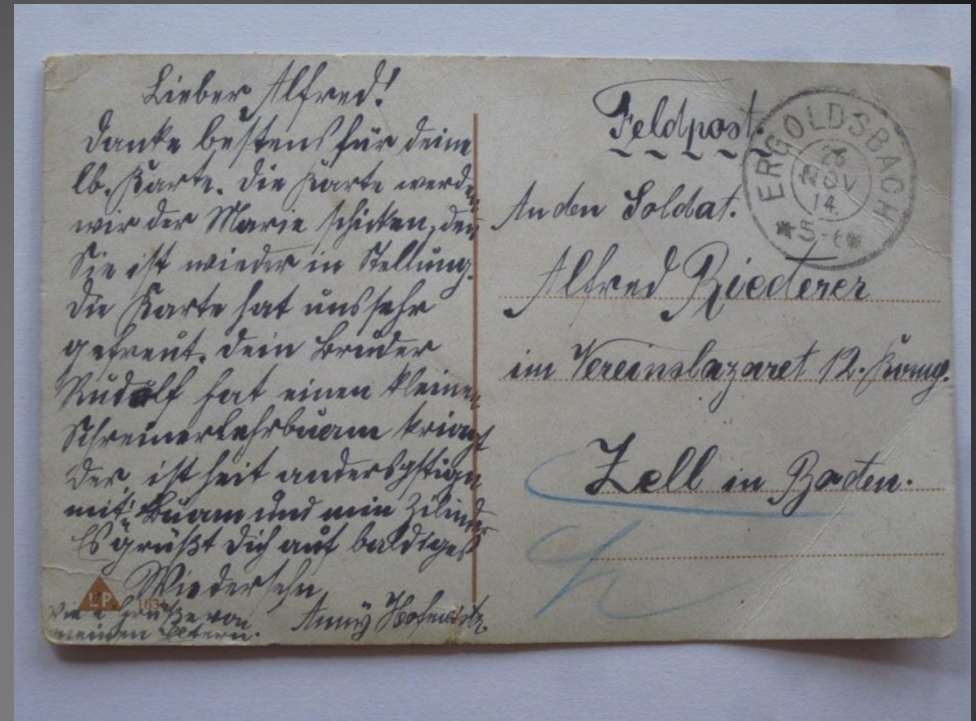 Lieber Alfred!
Danke bestens für deine
lb. Karte. Die Karte werden
wir der Marie schicken, den
Sie ist wieder in Stellung.
Die Karte hat uns sehr
gefreut. Dein Bruder
Rudolf hat einen kleinen
Schreinerlehrbuam kriagt
der ist heit
mit Buam und mein
Es grüßt Dich auf baldiges
Wiedersehn
Anny
Viele Grüße von
meinen Eltern.
LP
163
Feldpost.
ERGOLDSBACH
26
NOV
14.
*5-6*
An den Soldat.
Alfred Riederer
im Vereinslazaret 12. Komp.
Zell in Baden.